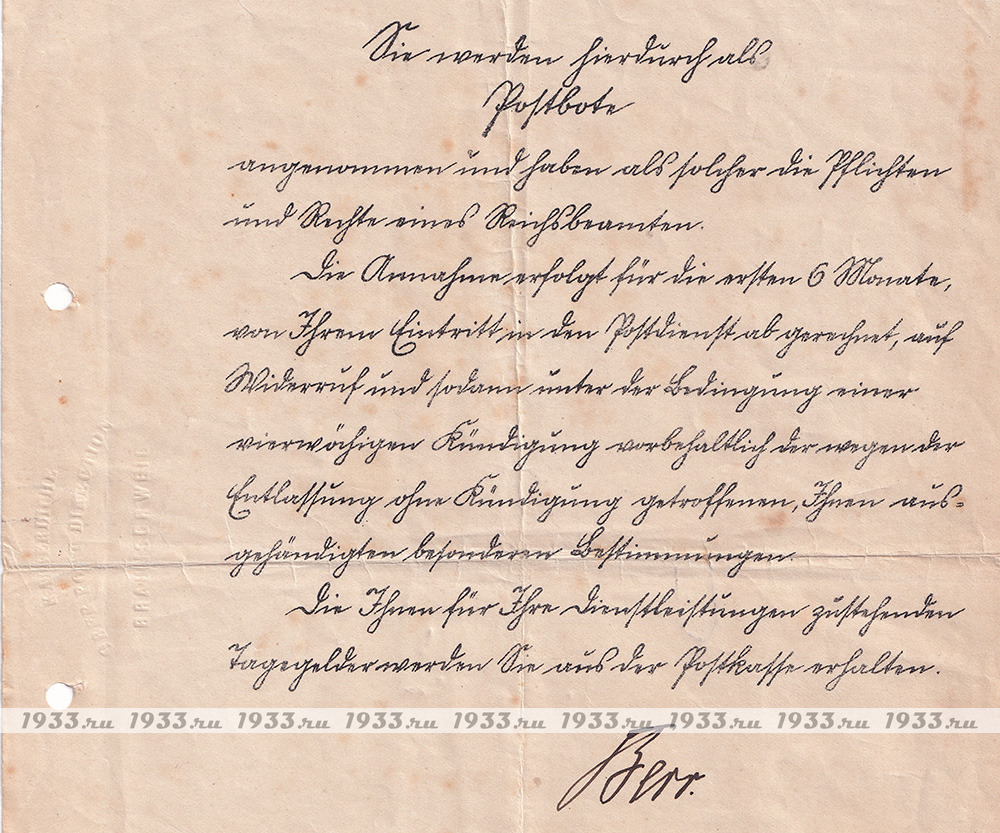 Sie werden hierdurch als
Postbote
angenommen und haben als solcher die Pflichten
und Rechte eines Reichsbeamten.
Die Annahme erfolgt für die ersten 6 Monate,
von Ihrem Eintritt in den Postdienst ab gerechnet, auf
Widerruf und sodann unter der Bedingung einer
vierwöchigen Kündigung vorbehaltlich der wegen der
Entlassung ohne Kündigung getroffenen, Ihnen aus-
gehändigten besonderen Bestimmungen.
Die Ihnen für Ihre Dienstleistungen zustehenden
Tagegelder werden Sie aus der Postkasse erhalten.
1933.ru 1933.ru 1933.ru 1933.ru 1933.ru 1933.ru 1933.ru 1933.ru 1933.ru